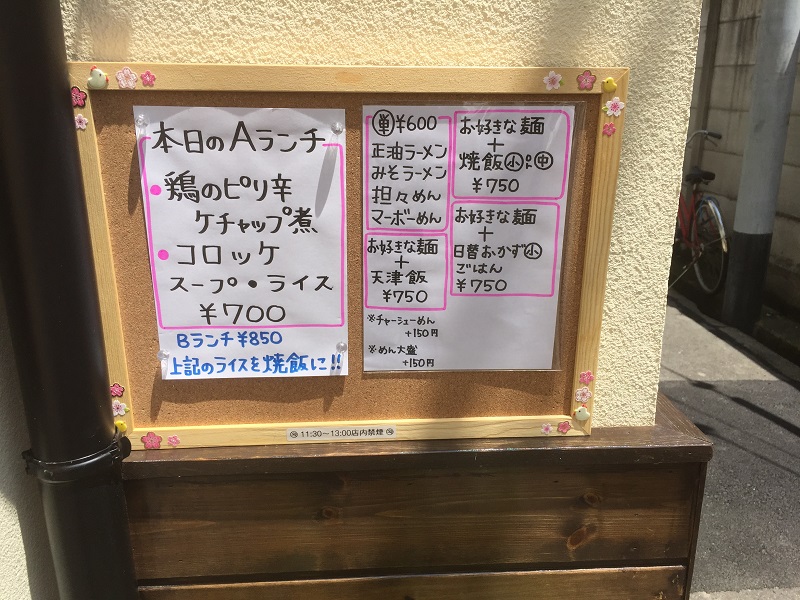 本日のAランチ
鶏のピリ辛
ケチャップ煮
コロッケ
スープ・ライス
¥700
Bランチ¥850
上記のライスを焼飯に!!
単¥600
正油ラーメン
みそラーメン
担々めん
マーボーめん
お好きな麺
+
天津飯
¥750
※チャーシューめん
+150円
※めん大盛
+150円
お好きな麺
+
焼飯小or中
¥750
お好きな麺
+
日替おかず小
ごはん
¥750
11:30~13:00店内禁煙